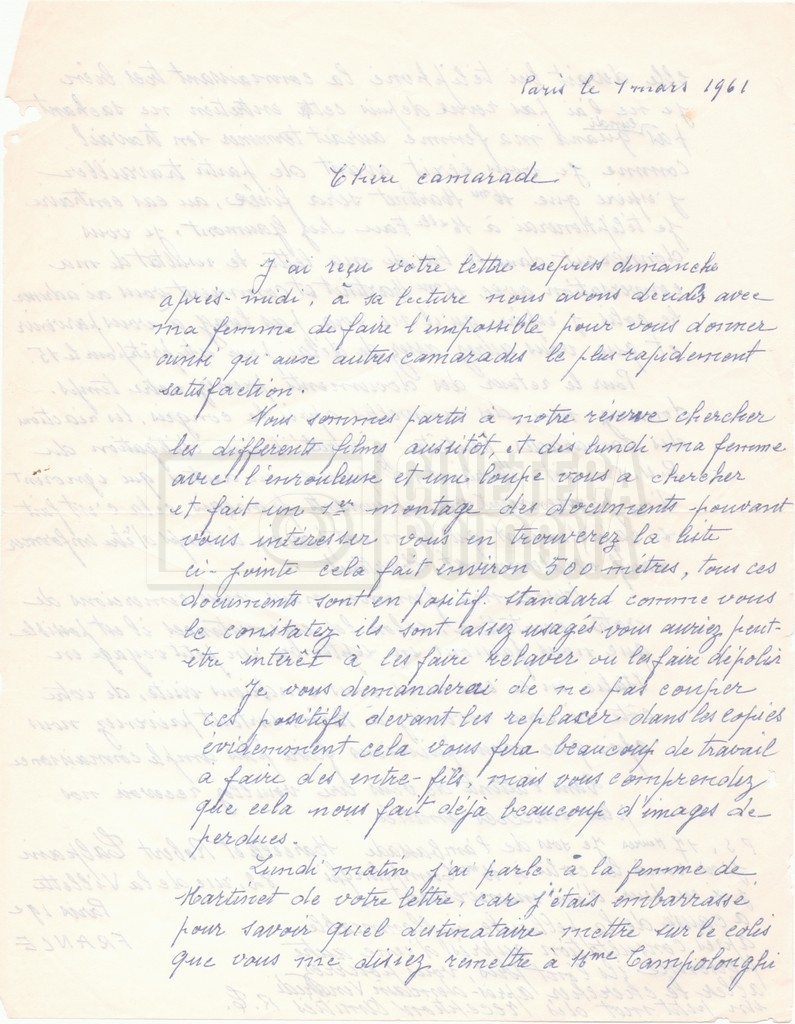 Paris le 1 mars 1961
Chère camarade
J'ai reçu votre lettre express dimanche
après-midi, à sa lecture nous avons décidés avec
ma femme de faire l'impossible pour vous donner
ainsi qu'aux autres camarades le plus rapidement
satisfaction.
Nous sommes partis à notre réserve chercher
les différents films aussitôt, et dès lundi ma femme
avec l'enrouleuse et une loupe vous a chercher
et fait un 1er montage des documents pouvant
vous intéresser vous en trouverez la liste
ci-jointe cela fait environ 500 mètres, tous ces
documents sont en positif. standard comme vous
le constatez ils sont assez usagés vous auriez peut-
être intérêt à les faire relaver ou les faire dépolir
Je vous demanderai de ne pas couper
ces positifs devant les replacer dans les copies
évidemment cela vous fera beaucoup de travail
a faire des entre-fils, mais vous comprendez
que cela nous fait déjà beaucoup d'images de
perdues.
Lundi matin j'ai parlé à la femme de
Martinet de votre lettre, car j'étais embarrassé
pour savoir quel destinataire mettre sur le colis
que vous me disiez remettre à Mme Campolonghi
CINETECA
BOLOGNA